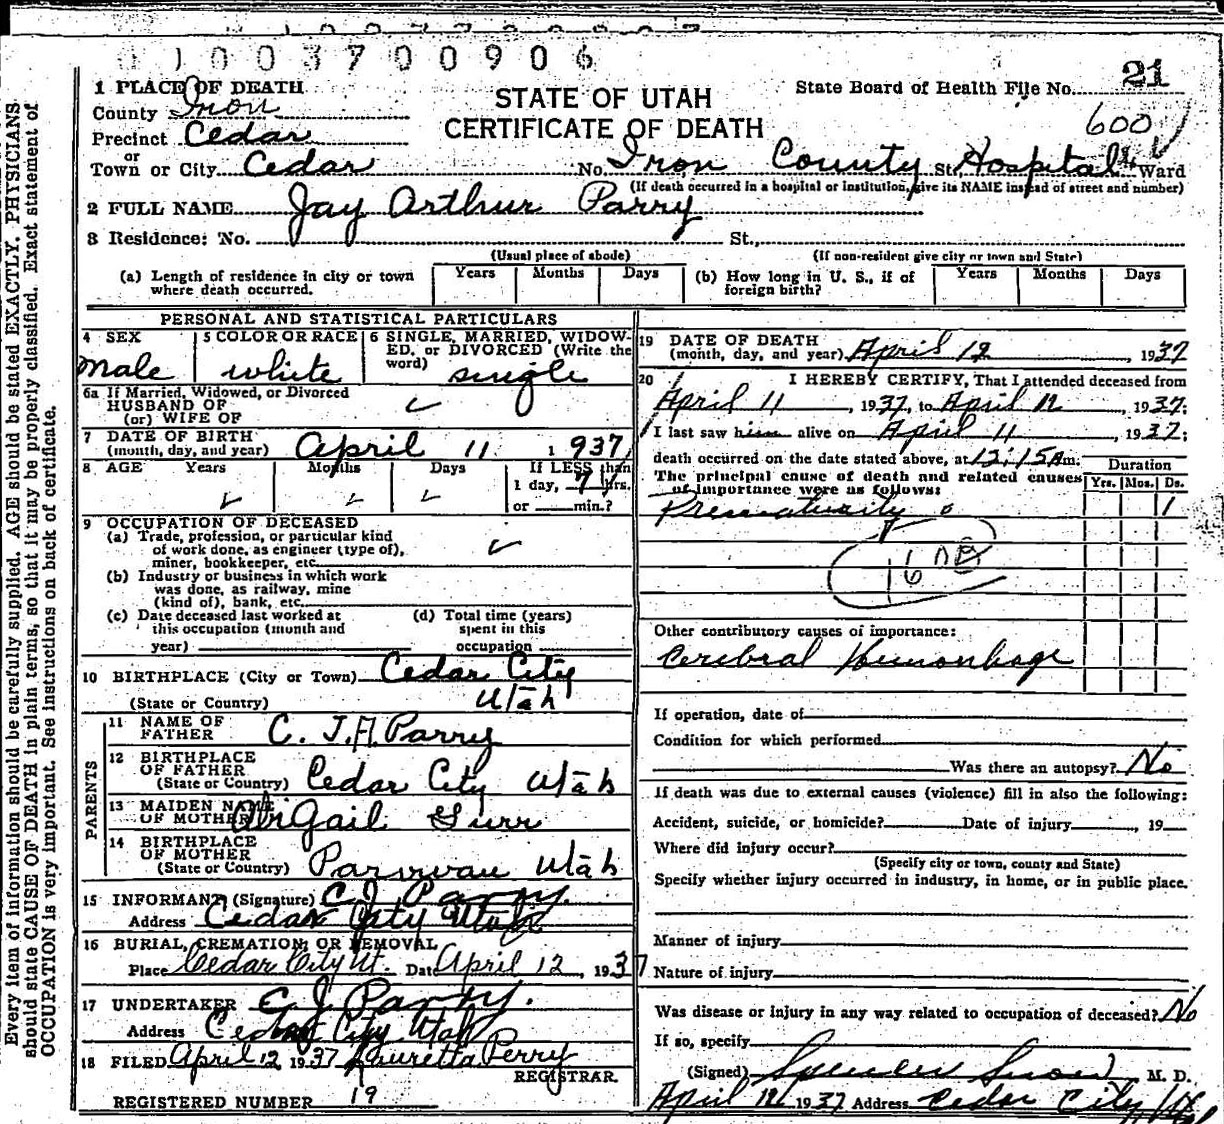 0 1 0 0 3 7 0 0 9 0 6
21
1 PLACE OF DEATH
County Iron
Precinct Cedar
or
Town or City Cedar
STATE OF UTAH
CERTIFICATE OF DEATH
State Board of Health File No.
600
No. Iron County St. Hospital Ward
(If death occurred in a hospital or institution, give its NAME instead of street and number)
2 FULL NAME Jay Arthur Parry
3 Residence: No. St.,
(Usual place of abode) (If non-resident give city or town and State)
(a) Length of residence in city or town where death occurred. Years Months Days (b) How long in U. S., if of foreign birth? Years Months Days
PERSONAL AND STATISTICAL PARTICULARS
4 SEX
male
5 COLOR OR RACE
white
6 SINGLE, MARRIED, WIDOW-
ED, or DIVORCED (Write the
word) single
6a If Married, Widowed, or Divorced
HUSBAND OF
(or) WIFE OF
7 DATE OF BIRTH
(month, day, and year) April 11 1937
8 AGE Years Months Days If LESS than
1 day, 7 hrs.
or min.?
9 OCCUPATION OF DECEASED
(a) Trade, profession, or particular kind
of work done, as engineer (type of),
miner, bookkeeper, etc.
(b) Industry or business in which work
was done, as railway, mine
(kind of), bank, etc.
(c) Date deceased last worked at
this occupation (month and
year)
(d) Total time (years)
spent in this
occupation
10 BIRTHPLACE (City or Town) Cedar City
(State or Country) Utah
PARENTS
11 NAME OF
FATHER C. J. A. Parry
12 BIRTHPLACE
OF FATHER
(State or Country) Cedar City Utah
13 MAIDEN NAME
OF MOTHER Abigail Gurr
14 BIRTHPLACE
OF MOTHER
(State or Country) Parowan Utah
15 INFORMANT (Signature) C J Parry.
Address Cedar City Utah
16 BURIAL, CREMATION, OR REMOVAL
Place Cedar City Ut. Date April 12, 1937
17 UNDERTAKER C. J. Parry.
Address Cedar City Utah
18 FILED April 12 1937 Lauretta Perry
REGISTRAR.
REGISTERED NUMBER 19
19 DATE OF DEATH
(month, day, and year) April 12, 1937
20 I HEREBY CERTIFY, That I attended deceased from
April 11, 1937, to April 12, 1937;
I last saw him alive on April 11, 1937;
death occurred on the date stated above, at 12:15 A m.
The principal cause of death and related causes
of importance were as follows:
Duration
Yrs. Mos. Ds.
Prematurity 1
Other contributory causes of importance:
Cerebral Hemorrhage
If operation, date of
Condition for which performed
Was there an autopsy? No
If death was due to external causes (violence) fill in also the following:
Accident, suicide, or homicide? Date of injury, 19
Where did injury occur?
(Specify city or town, county and State)
Specify whether injury occurred in industry, in home, or in public place.
Manner of injury
Nature of injury
Was disease or injury in any way related to occupation of deceased? No
If so, specify
(Signed) Spencer Snow M. D.
April 12 1937 Address Cedar City, Utah
Every item of information should be carefully supplied. AGE should be stated EXACTLY. PHYSICIANS
should state CAUSE OF DEATH in plain terms, so that it may be properly classified. Exact statement of
OCCUPATION is very important. See instructions on back of certificate.